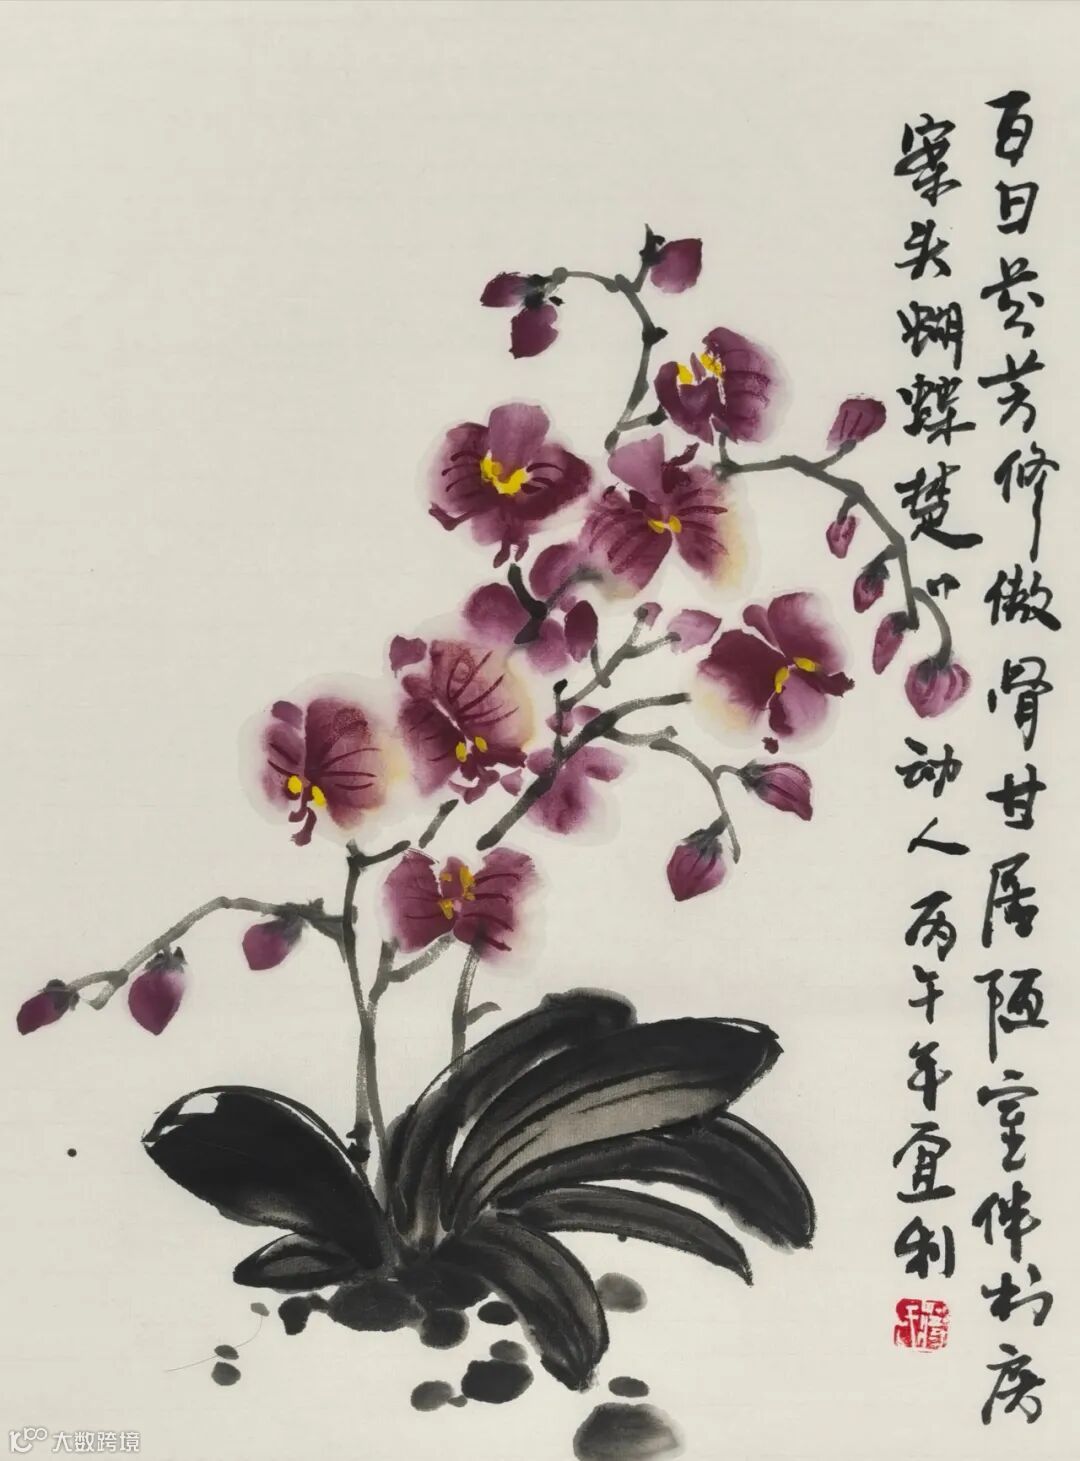 百日芬芳修傲骨甘居陋室伴
案头蝴蝶楚〻动人丙午年宜利
大数跨境